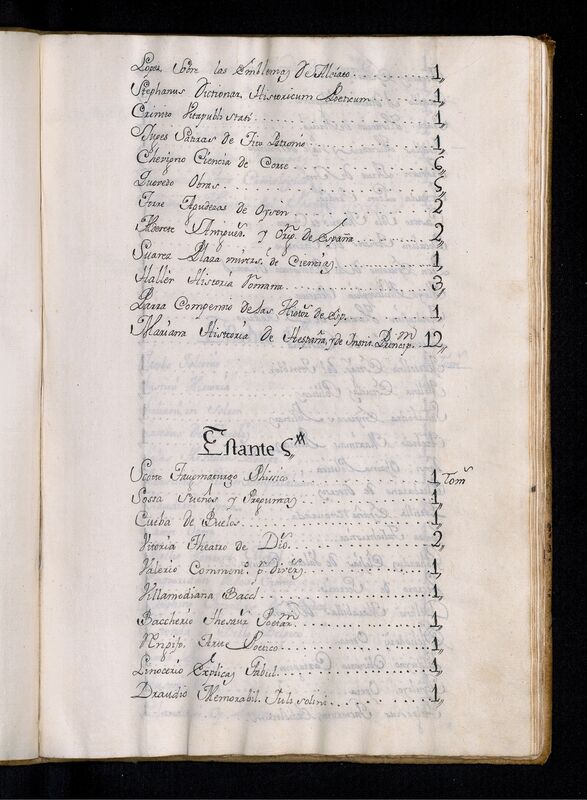 Lopez sobre las Emblemas de Alciato 1,,
Stephanus Dictionar. Historicum Poetrum 1,,
Crinito Vitapubli stati 1,,
Satiras de Tito Petronio 1,,
Chevigni Ciencia de Corte 6,,
Quevedo Obras 5,,
Torre Agudezas de Oven 2
Alderete Antigue.s y Orig. de España 2,,
Suarez Plaza univers. de Ciencias 1,,
Haller Historia Romana 3,,
Parra Compendio de las Histor. de Esp. 1,,
Mariana Historia de Hespaña, y de Instit. Princip. 12,,
Estante 5,,
Scotto Taugmaturgo Phissico 1,, Tom.
Sosta Sueños y Preguntas 1,,
Cueba de Buelos 1,,
Vitoria Theatro de Dio. 2,,
Valerio Comment. 1,,
Villamediana 1,,
Baccherio Thesaur Poetar. 1,,
Arte Poetico 1,,
Linocerio Explicaz. Fabul. 1,,
Draudio Memorabil. Juls solini 1,,